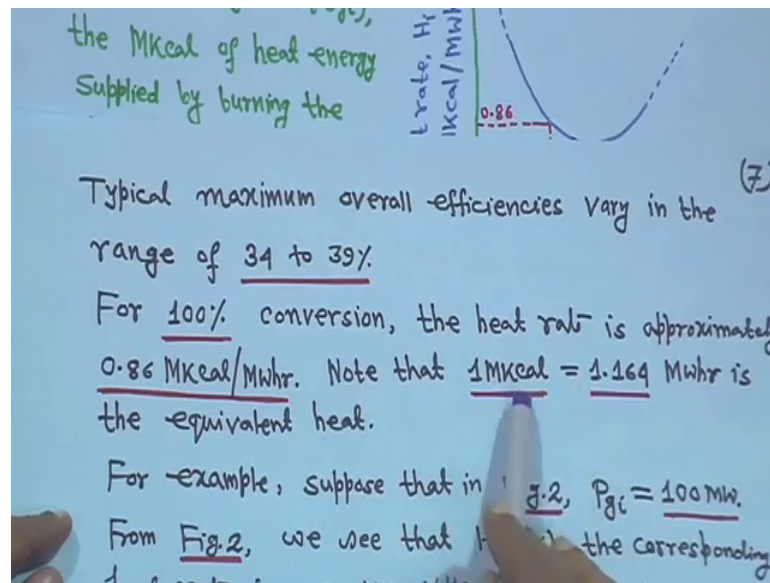 the MKcal of heat energy
Supplied by burning the
t rate, Hi
0.86
(7)
Typical maximum overall efficiencies vary in the
range of 34 to 39%.
For 100% conversion, the heat rate is approximately
0.86 MKcal/Mwhr. Note that 1MKcal = 1.164 Mwhr is
the equivalent heat.
For example, suppose that in g.2, Pgi = 100 MW.
From Fig.2, we see that the corresponding